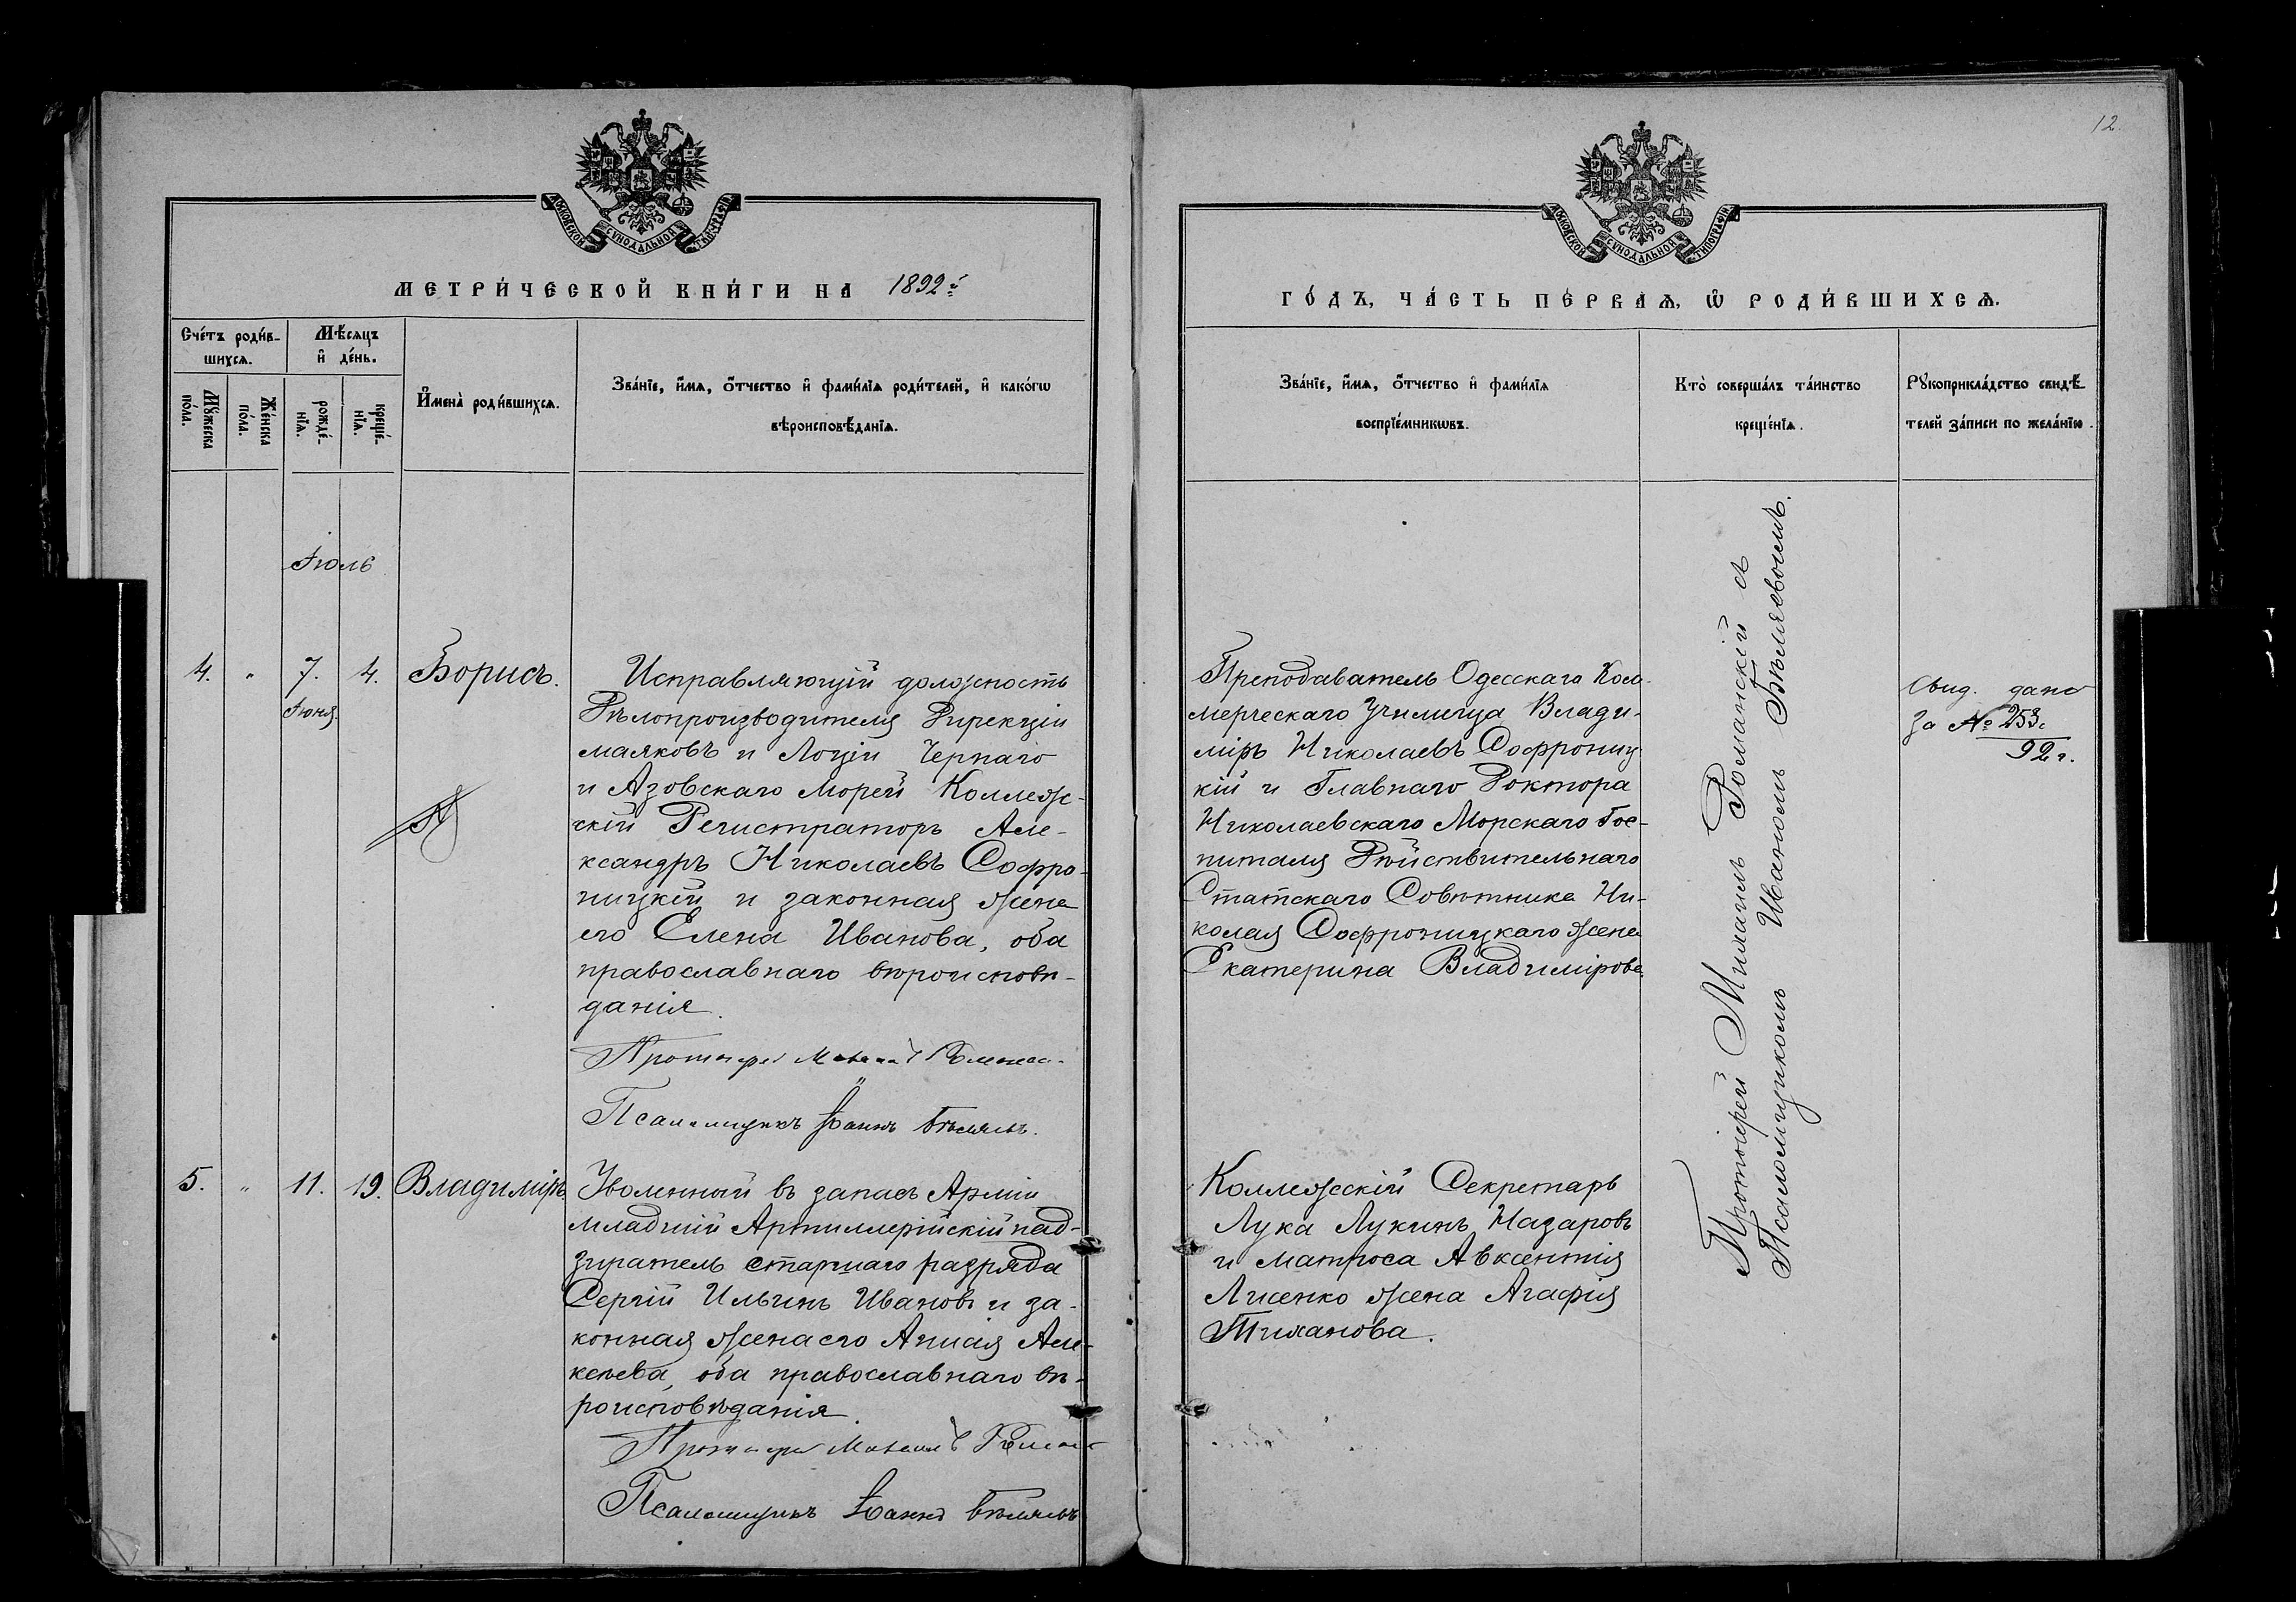 12.
МОСКОВСКОЙ СѴНОДАЛЬНОЙ ТИПОГРАФІИ
МОСКОВСКОЙ СѴНОДАЛЬНОЙ ТИПОГРАФІИ
МЕТРИ́ЧЕСКОЙ КНИ́ГИ НА 1892й
ГО́ДЪ, ЧА́СТЬ ПЕ́РВАѦ, Ѡ РОДИ́ВШИХСѦ.
Сче́тъ роди́в-
шихсѧ.
Мꙋ́жеска
по́ла.
Же́нска
по́ла.
Мѣ́сѧцъ
и де́нь.
рожде́-
нїѧ.
креще́-
нїѧ.
И҆мена̀ роди́вшихсѧ.
Зва́нїе, и҆́мѧ, ѻ҆́тчество и҆ фами́лїѧ роди́телей, и҆ како́гѡ
вѣроисповѣ́данїѧ.
Зва́нїе, и҆́мѧ, ѻ҆́тчество и҆ фами́лїѧ
воспрїе́мникѡвъ.
Кто̀ соверша́лъ та́инство
креще́нїѧ.
Рꙋкоприкла́дство свидѣ́-
телей за́писи по жела́нїю.
Іюль
4. " 7. 4. Борисъ.
Іюня.
Исправляющій должность
Дѣлопроизводителя Дирекціи
маяковъ и Лоціи Чернаго
и Азовскаго Морей Коллеж-
скій Регистраторъ Але-
ксандръ Николаевъ Софро-
ницкій и законная жена
его Елена Иванова, оба
православнаго вѣроисповѣ-
данія.
Протоіерей Михаилъ
Псаломщикъ Іоаннъ Бѣляевъ.
Преподаватель Одесскаго Ком-
мерческаго Училища Влади-
міръ Николаевъ Софрониц-
кій и Главнаго Доктора
Николаевскаго Морскаго Гос-
питаля Дѣйствительнаго
Статскаго Совѣтника Ни-
колая Софроницкаго жена
Екатерина Владимірова.
Протоіерей Михаилъ Романскій съ
Псаломщикомъ Иваномъ Бѣляевымъ.
Свид. дано
за № 253.
92 г.
5. " 11. 19. Владиміръ
Уволенный въ запасъ Арміи
младшій Артиллерійскій над-
зиратель старшаго разряда
Сергій Ильинъ Ивановъ и за-
конная жена его Анисія Але-
ксѣева, оба православнаго вѣ-
роисповѣданія.
Протоіерей Михаилъ
Псаломщикъ Іоаннъ Бѣляевъ
Коллежскій Секретарь
Лука Лукинъ Назаровъ
и матроса Авксентія
Лисенко жена Агафія
Тиханова.